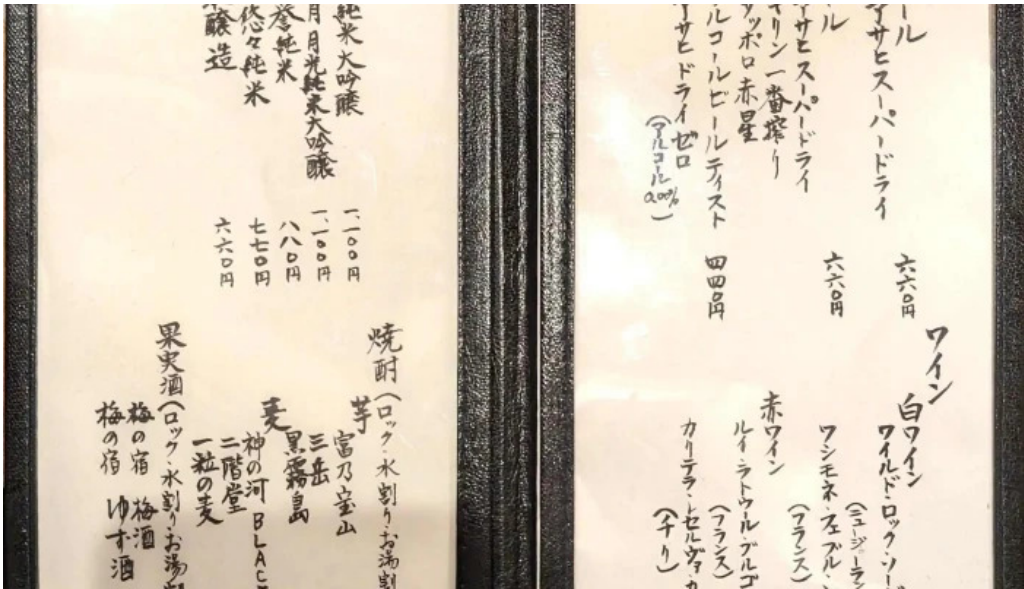 ール
アサヒスーパードライ
六六〇円
ル
アサヒスーパードライ
キリン一番搾り
サッポロ赤星
六六〇円
ルコールビールテイスト
アサヒドライゼロ
(アルコール0.00%)
四四〇円
ワイン
白ワイン
ワイルド・ロック・ソー
(ニュージーラン
ワシモネ・フェブル・
(フランス)
赤ワイン
ルイ・ラトゥール・ブルゴ
(フランス)
カリテラ・レセルヴァ・カ
(チリ)
純米大吟醸
一、一〇〇円
月光純米大吟醸
一、一〇〇円
誉純米
八八〇円
悠々純米
七七〇円
醸造
六六〇円
焼酎(ロック・水割り・お湯割
芋
富乃宝山
三岳
黒霧島
麦
神の河 BLAC
二階堂
一粒の麦
果実酒(ロック・水割り・お湯割
梅の宿 梅酒
梅の宿 ゆず酒